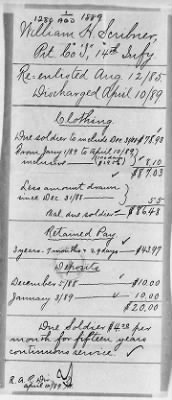 1280 AGO 1889
William H. Scribner,
Pvt. Co "I", 14th Infy
Re-enlisted Aug 12/85
Discharged April 10/89
Clothing
Due soldier to include Dec 31/88 $78.93
From Jany 1/89 to April 10/89
inclusive 8.10
$87.03
Less amount drawn
since Dec 31/88 55
Bal. due soldier $86.48
Retained Pay
3 years. 7 months & 29 days $43.97
Deposits
December 5/88 $10.00
January 3/89 10.00
$20.00
Due Soldier $4.00 per
month for fifteen years
continuous service.
April 10/89